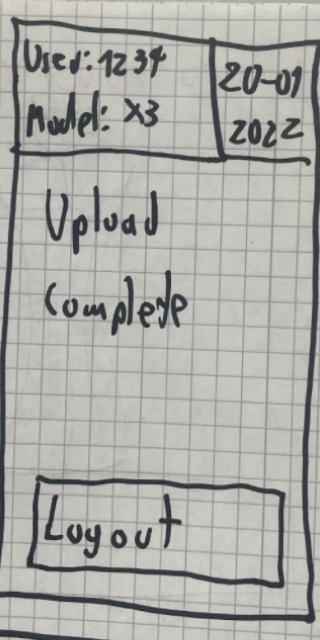 User: 1234
Model: X3
20-01
2022
Upload
Complete
Logout